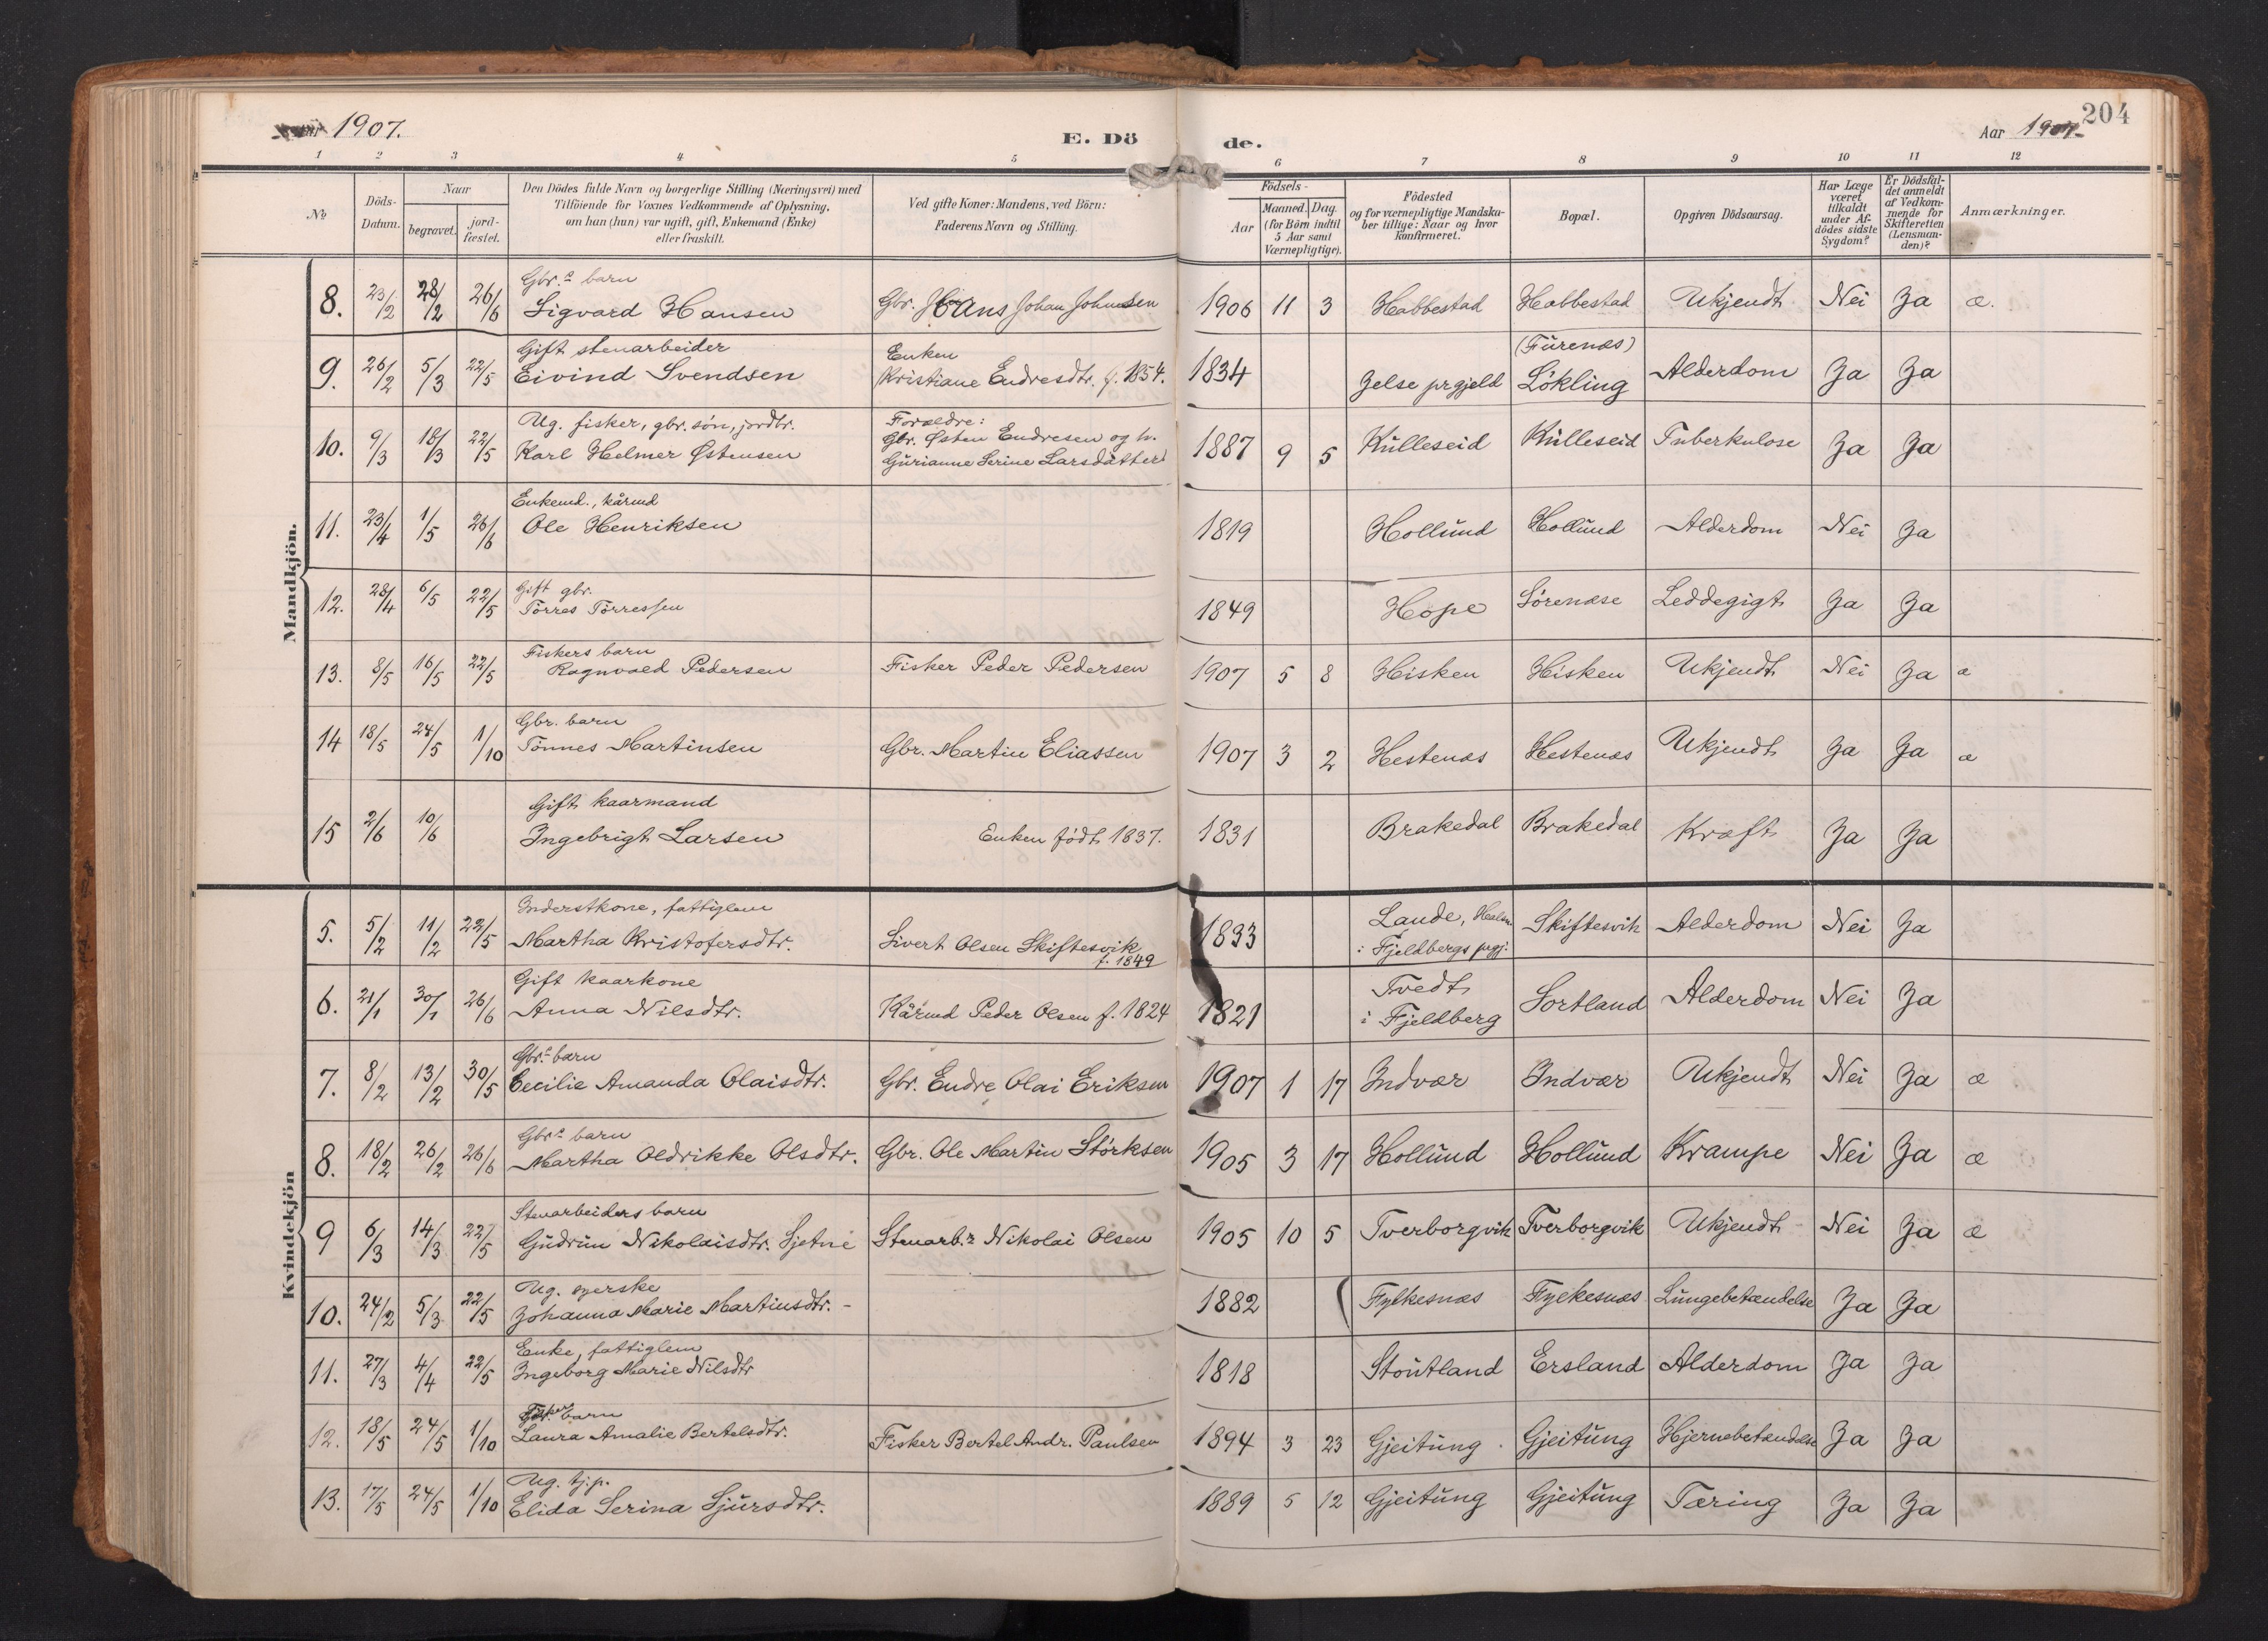 1907.
E. Dö
de.
Aar 1907.
204
1 2 3 4 5 6 7 8 9 10 11 12
№
Döds-Datum.
Naar
begravet.
jord-fæstet.
Den Dödes fulde Navn og borgerlige Stilling (Næringsvei) med
Tilföiende for Voxnes Vedkommende af Oplysning,
om han (hun) var ugift, gift, Enkemand (Enke)
eller fraskilt.
Ved gifte Koner: Mandens, ved Börn:
Faderens Navn og Stilling.
Födsels-
Aar
Maaned. Dag.
(for Börn indtil
5 Aar samt
Værnepligtige).
Födested
og for værnepligtige Mandska-
ber tillige: Naar og hvor
konfirmeret.
Bopæl.
Opgiven Dödsaarsag.
Har Læge
været
tilkaldt
under Af-
dödes sidste
Sygdom?
Er Dödsfal-
det anmeldt
af Vedkom-
mende for
Skifteretten
(Lensman-
den)?
Anmærkninger.
Mandkjön.
Gbr.s barn
8. 23/2 28/2 26/6 Sigvard Hansen Gbr. Hans Johan Johnsen 1906 11 3 Habbestad Habbestad Ukjendt Nei Ja æ.
Gift stenarbeider Enken (Fürenæs)
9. 26/2 5/3 22/5 Eivind Svendsen Kristiane Endresdtr. f. 1854. 1834 Jelse prgjeld Lökling Alderdom Ja Ja
Ug. fisker, gbr. søn, jordbr. Forældre:
10. 9/3 18/3 22/5 Karl Helmer Østensen Gbr. Østen Endresen og h. 1887 9 5 Külleseid Külleseid Tuberkulose Ja Ja
Gürianne Serine Larsdatter
Enkemd., kårmd
11. 23/4 1/5 26/6 Ole Henriksen 1819 Hollünd Hollünd Alderdom Nei Ja
Gift gbr.
12. 28/4 6/5 22/5 Tørres Tørressen 1849 Hope Sörenæse Leddegigt Ja Ja
Fiskers barn
13. 8/5 16/5 22/5 Ragnvald Pedersen Fisker Peder Pedersen 1907 5 8 Hisken Hisken Ukjendt Nei Ja æ
Gbr. barn
14 18/5 24/5 1/10 Tönnes Martinsen Gbr. Martin Eliassen 1907 3 2 Hestenæs Hestenæs Ukjendt Ja Ja æ
Gift kaarmand
15 2/6 10/6 Ingebrigt Larsen Enken født 1837. 1831 Brakedal Brakedal Kræft Ja Ja
Kvindekjön
Inderstkone, fattiglem
5. 5/2 11/2 22/5 Martha Kristofersdtr. Sivert Olsen Skiftesvik f. 1849 1833 Lande, i Fjeldbergs prgj. Skiftesvik Alderdom Nei Ja
Gift kaarkone
6. 21/1 30/1 26/6 Anna Nilsdtr. Kårmd Peder Olsen f. 1824 1821 Tvedt i Fjeldberg Sortland Alderdom Nei Ja
Gbr.s barn
7. 8/2 13/2 30/5 Cecilie Amanda Olaisdtr. Gbr. Endre Olai Eriksen 1907 1 17 Indvær Indvær Ukjendt Nei Ja æ
Gbr.s barn
8. 18/2 26/2 26/6 Martha Oldrikke Olsdtr. Gbr. Ole Martin Störksen 1905 3 17 Hollünd Hollünd Krampe Nei Ja æ
Stenarbeiders barn
9 6/3 14/3 22/5 Güdrün Nikolaisdtr. Sjetne Stenarb.r Nikolai Olsen 1905 10 5 Tverborgvik Tverborgvik Ukjendt Nei Ja æ
Ug. syerske
10. 24/2 5/3 22/5 Johanna Marie Martinsdtr. - 1882 Fylkesnæs Fylkesnæs Lüngebetændelse Ja Ja
Enke, fattiglem
11. 27/3 4/4 22/5 Ingeborg Marie Nilsdtr 1818 Stoütland Ersland Alderdom Ja Ja
Fiskers barn
12. 18/5 24/5 1/10 Laura Amalie Bertelsdtr. Fisker Bertel Andr. Paulsen 1894 3 23 Gjeitüng Gjeitüng Hjernebetændelse Ja Ja
Ug. tj.p.
13. 17/5 24/5 1/10 Elida Serina Sjürsdtr. 1889 5 12 Gjeitüng Gjeitüng Tæring Ja Ja